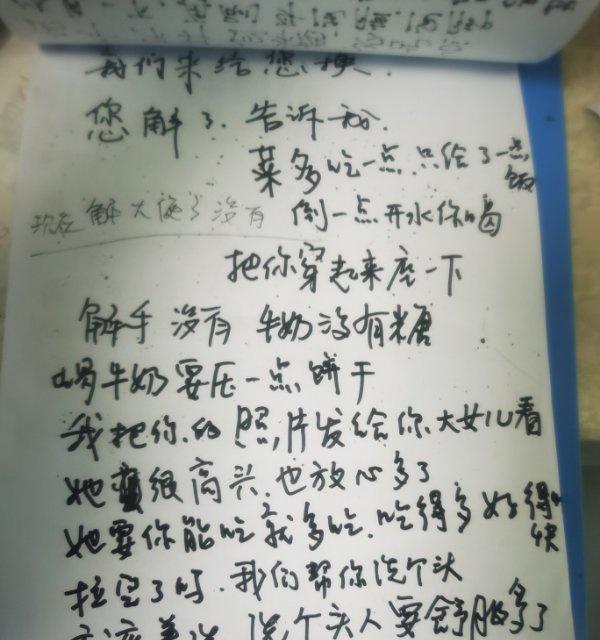 我们来给您换.
您解了.告诉我.
菜多吃一点.只给了一点饭
现在解大便了没有 倒一点开水你喝
把你穿起来座一下
解手没有 牛奶没有糖
喝牛奶要压一点饼干
我把你的照片发给你大女儿看
她很高兴.也放心多了
她要你能吃就多吃.吃得多好得快
拉完了吗.我们帮你洗个头
洗个头人要舒服多了